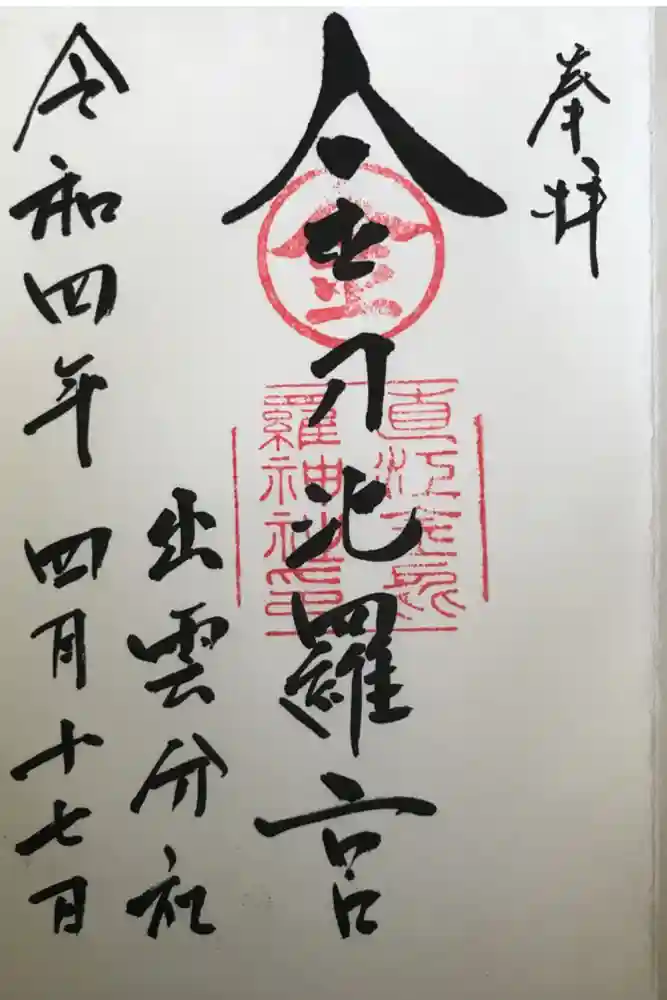 奉拝
金刀比羅宮
出雲分社
令和四年四月十七日
金
直江金刀比
羅神社之印